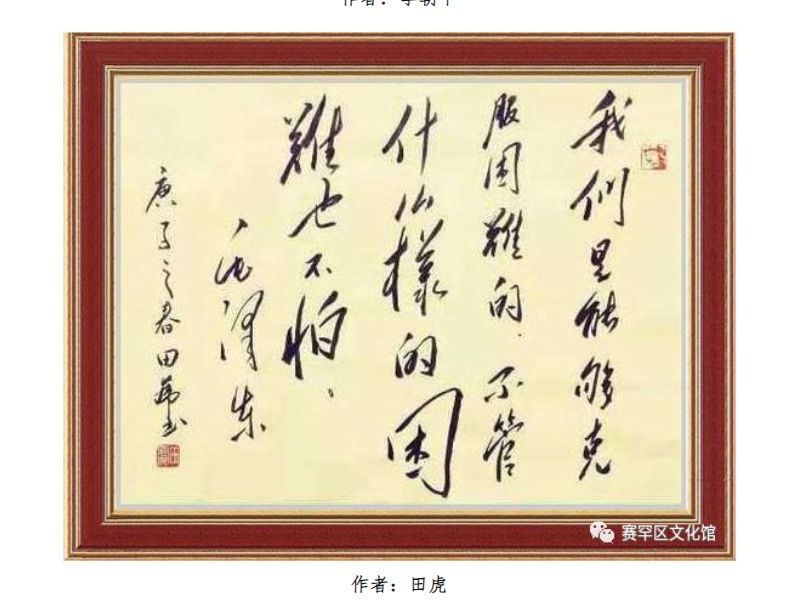 作者：
我们是能够克
服困難的.不管
什么樣的困
難也不怕、
毛澤东
庚子之春田虎书
赛罕区文化馆
作者：田虎